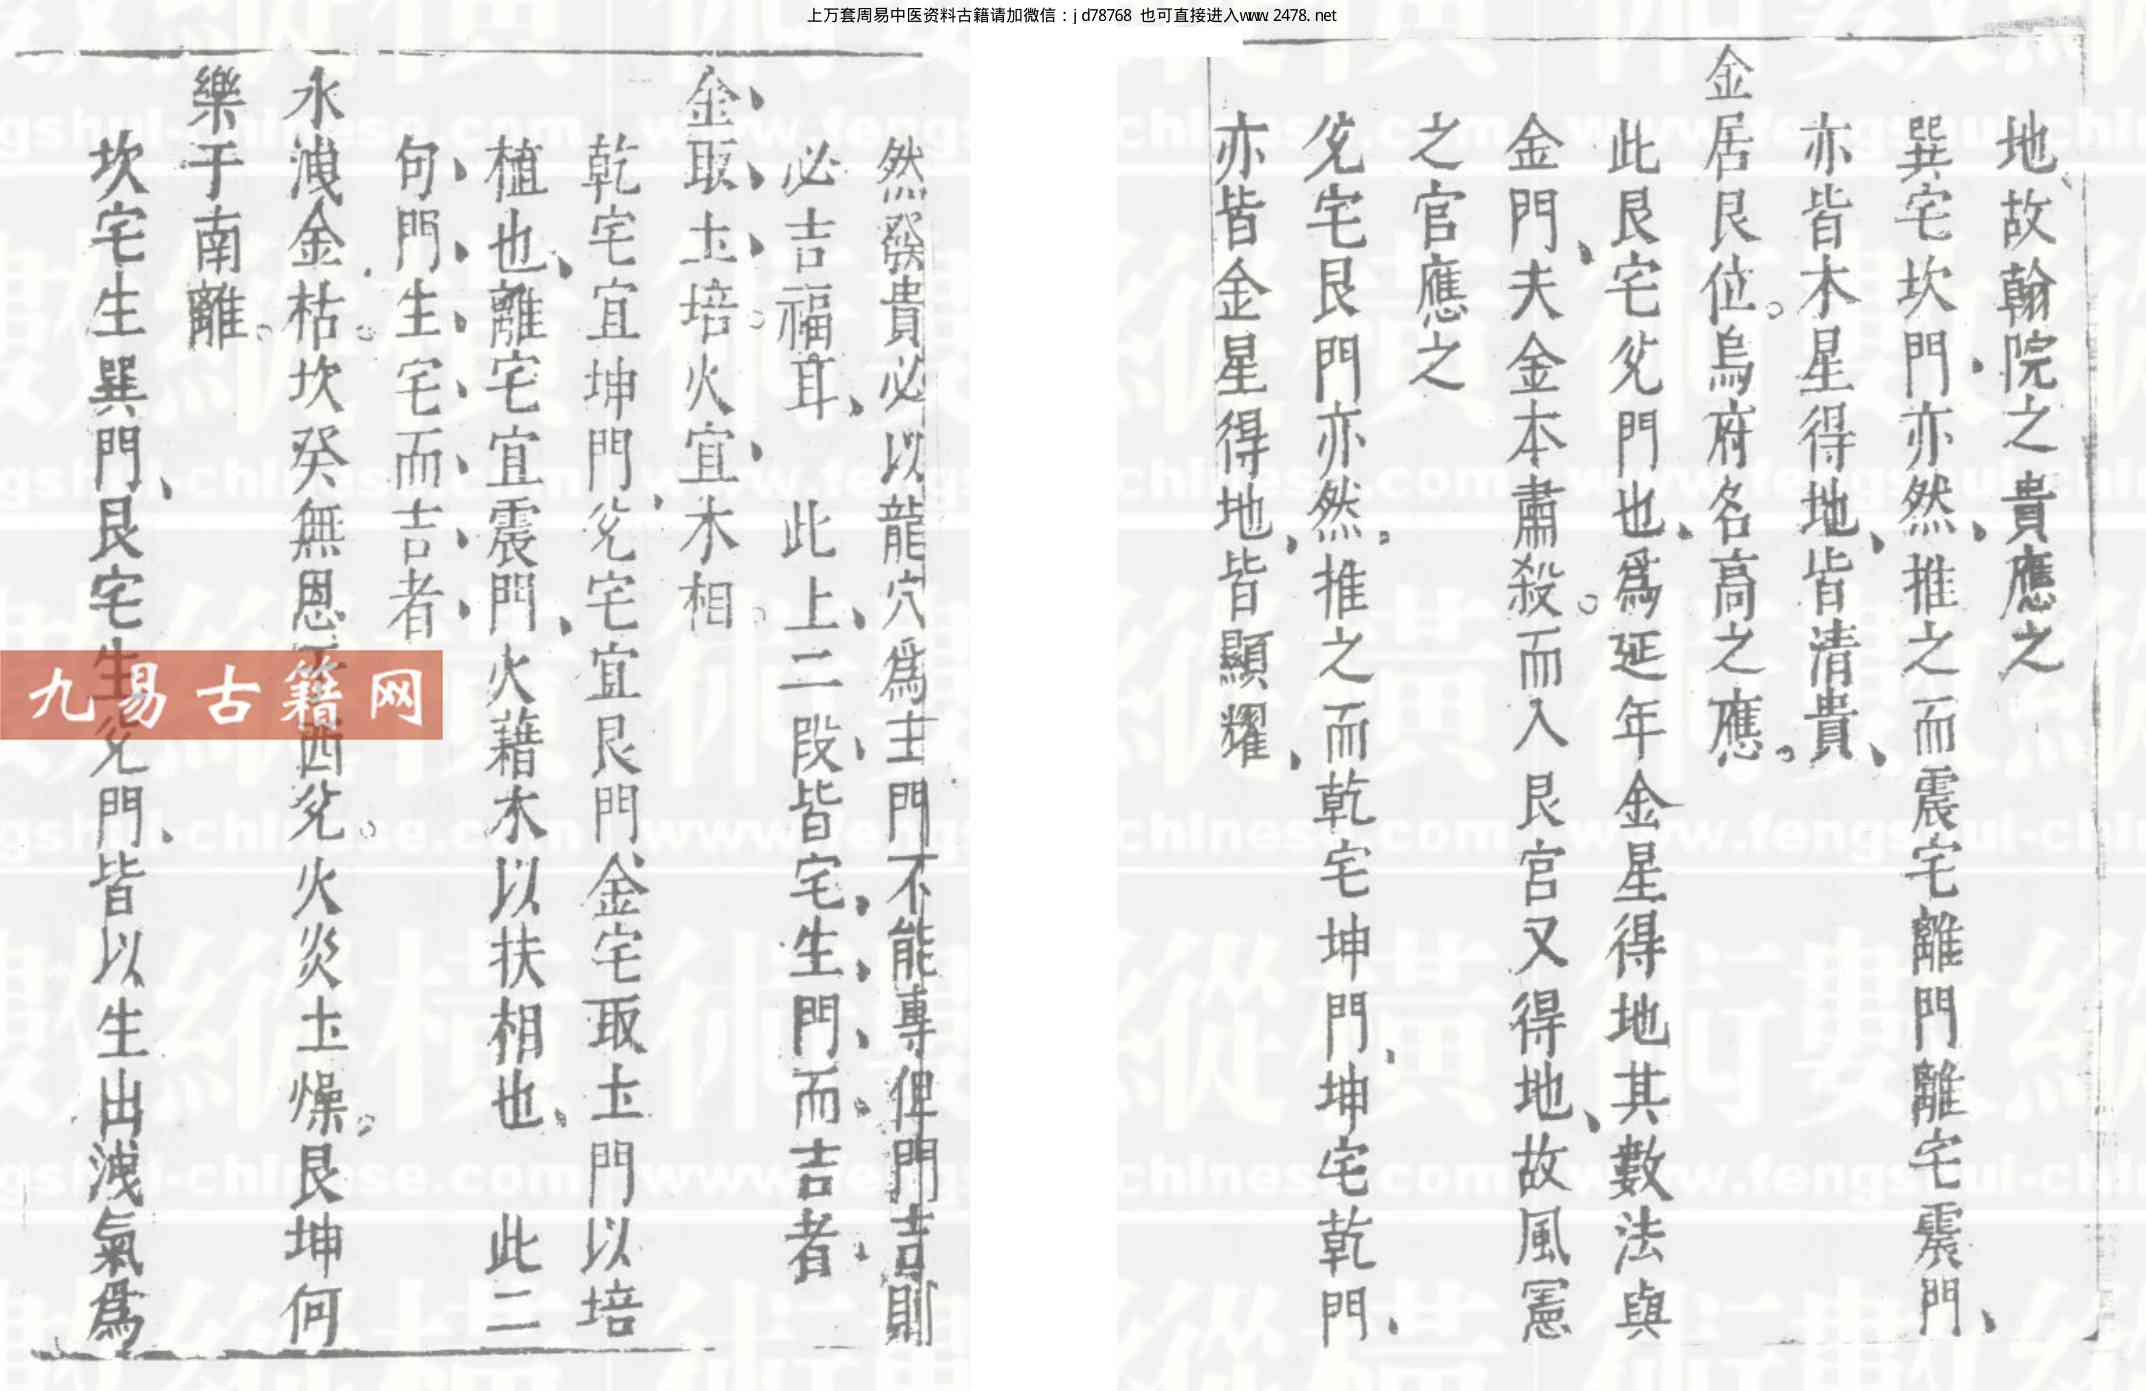 上万套周易中医资料古籍请加微信：jd78768 也可直接进入www.2478.net
地故翰院之貴應之
巽宅坎門亦然推之而震宅離門離宅震門
亦皆木星得地皆清貴
金居艮位烏府名高之應
此艮宅兊門也為延年金星得地其數法與
金門夫金金本肅殺而入艮宮又得地故風憲
之官應之
兊宅艮門亦然推之而乾宅坤門坤宅乾門
亦皆金星得地皆顯耀
然發貴必以龍穴為主門不能專俾門吉則
必吉福耳 此上二段皆宅生門而吉者
金取土培火宜木相
乾宅宜坤門兊宅宜艮門金宅取土門以培
植也離宅宜震門火藉木以扶相也 此二
句門生宅而吉者
水洩金枯坎癸無恩于西兊火炎土燥艮坤何
樂于南離
坎宅生巽門艮宅生兊門皆以生出洩氣為
九易古籍网